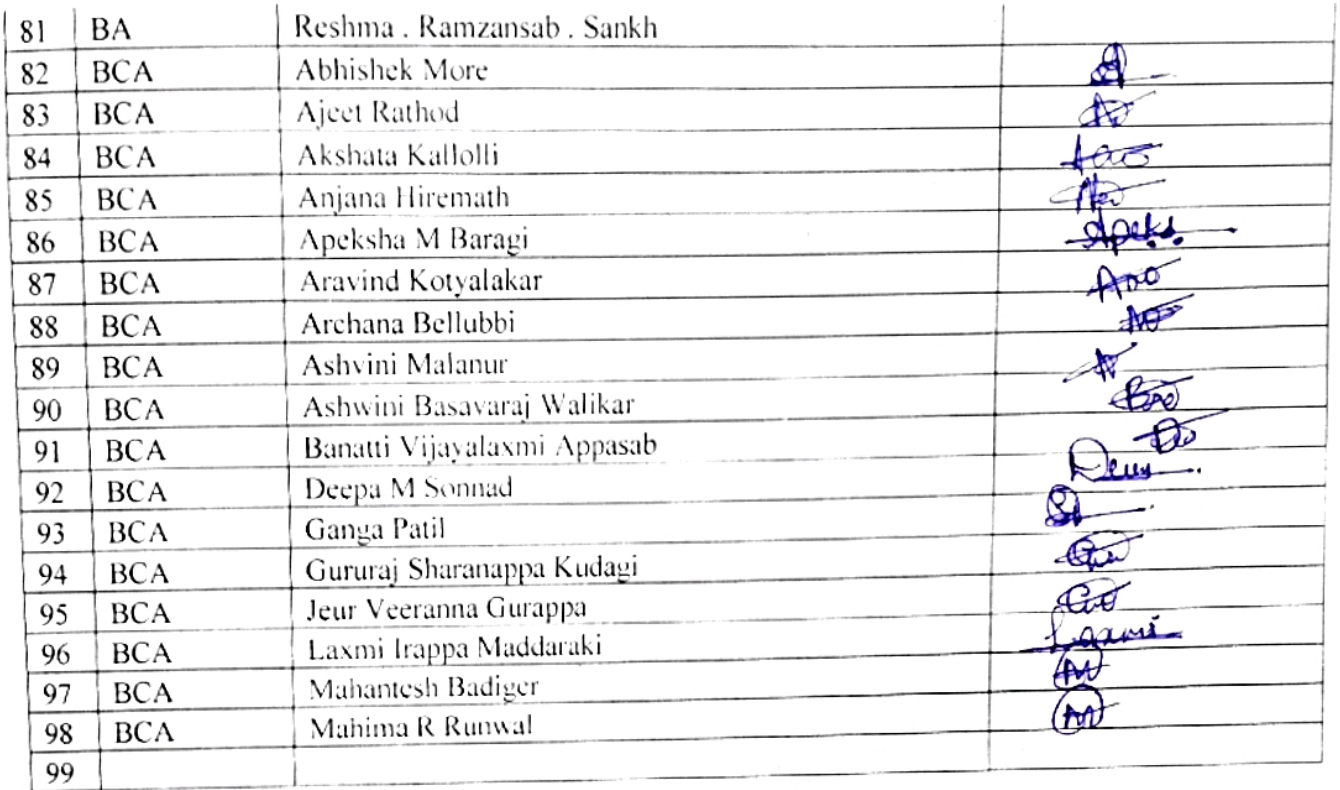 81 BA Reshma . Ramzansab . Sankh
82 BCA Abhishek More
83 BCA Ajeet Rathod
84 BCA Akshata Kallolli
85 BCA Anjana Hiremath
86 BCA Apeksha M Baragi
87 BCA Aravind Kotyalakar
88 BCA Archana Bellubbi
89 BCA Ashvini Malanur
90 BCA Ashwini Basavaraj Walikar
91 BCA Banatti Vijayalaxmi Appasab
92 BCA Deepa M Sonnad
93 BCA Ganga Patil
94 BCA Gururaj Sharanappa Kudagi
95 BCA Jeur Veeranna Gurappa
96 BCA Laxmi Irappa Maddaraki Laxmi
97 BCA Mahantesh Badiger
98 BCA Mahima R Runwal
99